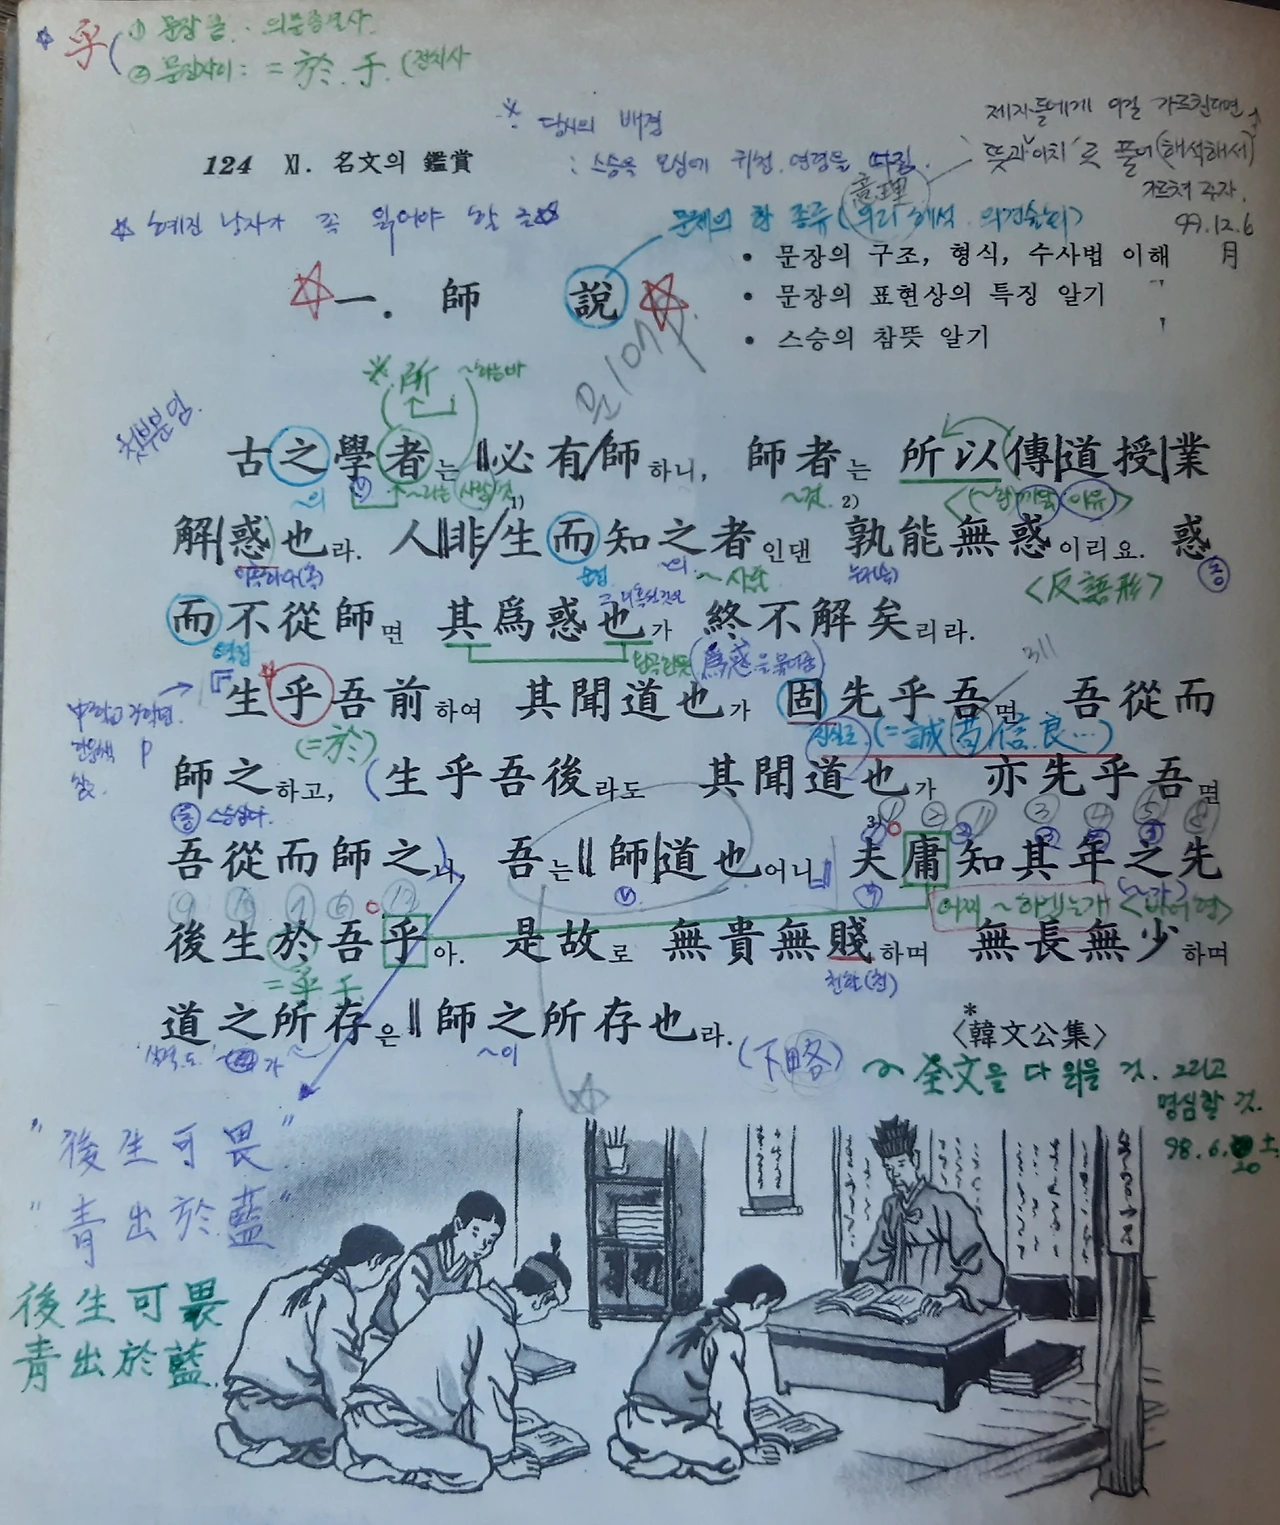 乎 ① 문장 끝 : 의문종결사
② 문장사이 : = 於. 于. (전치사
※ 당시의 배경
: 스승을 모심에 귀천. 연령을 따짐.
제자들에게 이걸 가르친다면,
'뜻과 이치'로 풀이(해석해서)
99.12.6
月
124 XI. 名文의 鑑賞
意理
문체의 한 종류(의리 해석. 의견술회)
• 문장의 구조, 형식, 수사법 이해
• 문장의 표현상의 특징 알기
• 스승의 참뜻 알기
一. 師 說
※ 所 ~하는바
古之學者는 必有師하니, 師者는 所以傳道授業
~의
~라는 사람, 것
~것.
1)
2)
解惑也라. 人非生而知之者인댄 孰能無惑이리요. 惑
~사람
<反語形>
而不從師면 其爲惑也가 終不解矣리라.
역접
生乎吾前하여 其聞道也가 固先乎吾면 吾從而
(=於)
진실로. (=誠 苟 信. 良…)
師之하고, 生乎吾後라도 其聞道也가 亦先乎吾면
3)
吾從而師之니, 吾는 師道也어니 夫庸知其年之先
어찌 ~하겠는가 <반어형>
後生於吾乎아. 是故로 無貴無賤하며 無長無少하며
= 乎 于
천할(천)
道之所存은 師之所存也라.
~이
(下略)
*
〈韓文公集〉
全文을 다 읽을 것. 그리고
명심할 것.
98.6.20 土
"後生可畏"
"靑出於藍"
後生可畏
靑出於藍.